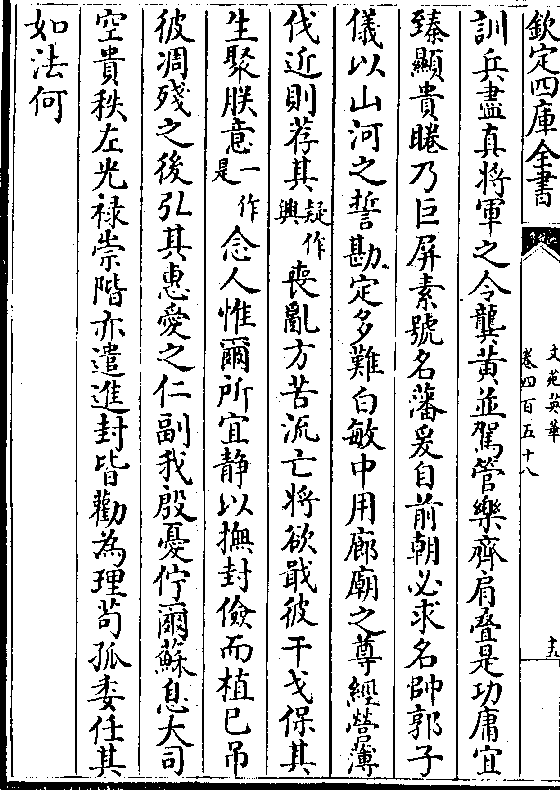 欽定四庫全書
文苑英華
卷四百五十八
訓兵盡真將軍之令龔黃並駕管樂齊肩叠是功庸宜
臻顯貴睠乃巨屏素號名藩爰自前朝必求名帥郭子
儀以山河之誓勘定多難白敏中用廊廟之尊經營薄
伐近則荐其疑作興喪亂方苦流亡將欲戢彼干戈保其
生聚朕意一作是念人惟爾所宜静以撫封儉而植已吊
彼凋殘之後弘其惠愛之仁副我殷憂佇爾蘇息大司
空貴秩左光禄崇階亦遣進封皆勸為理苟孤委任其
如法何